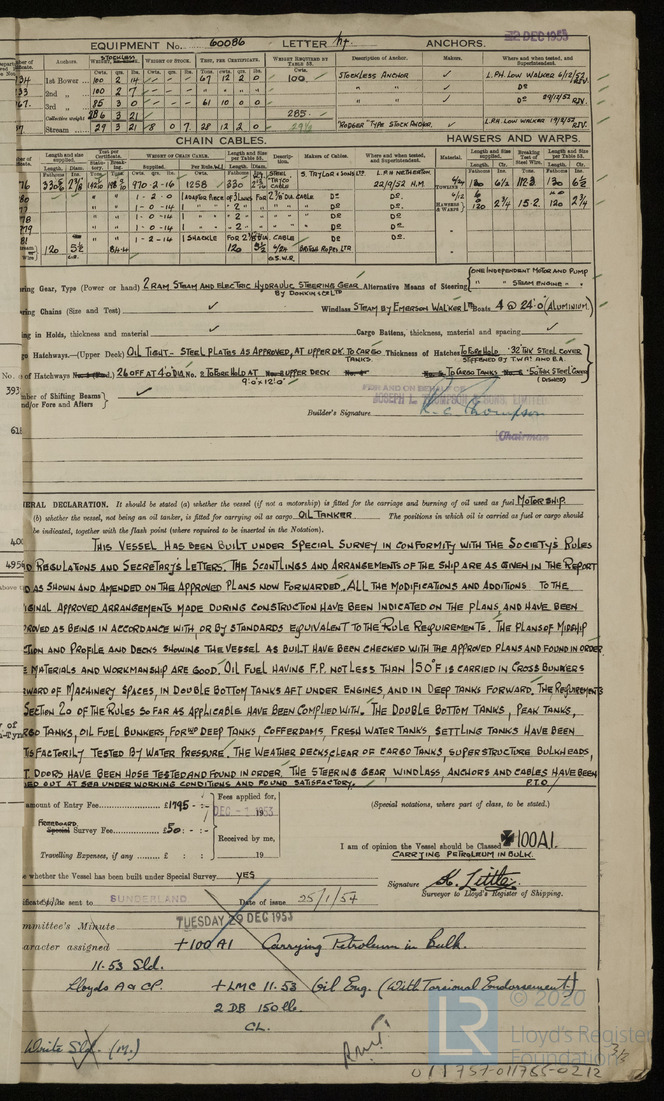 22 DEC 1953
EQUIPMENT No. 60086 LETTER ANCHORS.
Anchors. STOCKLESS WEIGHT OF STOCK. TEST, PER CERTIFICATE. WEIGHT REQUIRED BY TABLE 53. Description of Anchor. Makers. Where and when tested, and Superintendent.
Cwts. qrs. lbs. Cwts. qrs. lbs. Tons. cwts. qrs. lbs. Cwts.
1st Bower 100 2 14 67 12 2 0 100 STOCKLESS ANCHOR ✓ L.P.H. LOW WALKER 6/12/52
2nd „ 100 2 7 " " ✓ Do
3rd „ 85 3 0 61 10 0 0 " " ✓ Do
Collective weight 286 3 21 285
Stream 29 3 21 8 0 7 28 12 2 0 "RODGER" TYPE STOCK ANCHOR. ✓ L.P.H. LOW WALKER
CHAIN CABLES. HAWSERS AND WARPS.
Length and size supplied. Test per Certificate. WEIGHT OF CHAIN CABLE. Length and Size per Table 53. Description. Makers of Cables. Where and when tested, and Superintendent. Material. Length and size supplied. Breaking Test of Steel Wire. Length and Size per Table 53.
970-2-16 1258 330 S. TAYLOR & SONS LTD. L.P.H NETHERTON 22/9/52 H.M TOWLING 130 6½ 112.3 130 6½
1 - 2 - 0 1 ADAPTOR PIECE OF 3 LINKS FOR 2⅞" DIA CABLE Do Do. HAWSERS & WARPS 120 2¾ 15.2 120 2¾
1 - 0 - 14 1 " " " - 2 " - Do Do.
1 - 0 - 14 1 " " " - 2 " - Do Do.
1 - 0 - 14 1 " " " - 2 " - Do Do.
1 - 2 - 14 1 SHACKLE FOR CABLE Do Do.
120 5½ 84.4 120 5½ 6/24 G.S.W.R. BRITISH ROPES LTD
ring Gear, Type (Power or hand) 2 RAM STEAM AND ELECTRIC HYDRAULIC STEERING GEAR BY DONKIN & CO LTD Alternative Means of Steering ONE INDEPENDENT MOTOR AND PUMP " STEAM ENGINE "
ring Chains (Size and Test) ✓ Windlass STEAM BY EMERSON WALKER LTD Boats 4 @ 24'.0" (ALUMINIUM)
ng in Holds, thickness and material ✓ Cargo Battens, thickness, material and spacing ✓
go Hatchways.—(Upper Deck) OIL TIGHT - STEEL PLATES AS APPROVED, AT UPPER DK. TO CARGO TANKS. Thickness of Hatches TO FORE HOLD .32" THK STEEL COVER STIFFENED BY T.W.A! AND B.A
of Hatchways 26 OFF AT 4'.0" DIA. No. 2 TO FORE HOLD AT UPPER DECK 9'.0" x 12'.0" TO CARGO TANKS .50" THK STEEL COVER (DISHED)
mber of Shifting Beams
nd/or Fores and Afters ✓
FOR AND ON BEHALF OF
JOSEPH L. THOMPSON & SONS, LIMITED
Builder's Signature R. C. Thompson
Chairman
ERAL DECLARATION. It should be stated (a) whether the vessel (if not a motorship) is fitted for the carriage and burning of oil used as fuel MOTOR SHIP
(b) whether the vessel, not being an oil tanker, is fitted for carrying oil as cargo. OIL TANKER The positions in which oil is carried as fuel or cargo should
be indicated, together with the flash point (where required to be inserted in the Notation).
THIS VESSEL HAS BEEN BUILT UNDER SPECIAL SURVEY IN CONFORMITY WITH THE SOCIETY'S RULES
D REGULATIONS AND SECRETARY'S LETTERS. THE SCANTLINGS AND ARRANGEMENTS OF THE SHIP ARE AS GIVEN IN THE REPORT
D AS SHOWN AND AMENDED ON THE APPROVED PLANS NOW FORWARDED. ALL THE MODIFICATIONS AND ADDITIONS TO THE
IGINAL APPROVED ARRANGEMENTS MADE DURING CONSTRUCTION HAVE BEEN INDICATED ON THE PLANS, AND HAVE BEEN
ROVED AS BEING IN ACCORDANCE WITH, OR BY STANDARDS EQUIVALENT TO THE RULE REQUIREMENTS. THE PLANS OF MIDSHIP
CTION AND PROFILE AND DECKS SHOWING THE VESSEL AS BUILT HAVE BEEN CHECKED WITH THE APPROVED PLANS AND FOUND IN ORDER.
E MATERIALS AND WORKMANSHIP ARE GOOD. OIL FUEL HAVING F.P. NOT LESS THAN 150°F IS CARRIED IN CROSS BUNKERS
RWARD OF MACHINERY SPACES, IN DOUBLE BOTTOM TANKS AFT UNDER ENGINES, AND IN DEEP TANKS FORWARD. THE REQUIREMENTS
SECTION 20 OF THE RULES SO FAR AS APPLICABLE HAVE BEEN COMPLIED WITH. THE DOUBLE BOTTOM TANKS, PEAK TANKS,
RGO TANKS, OIL FUEL BUNKERS, FORWD DEEP TANKS, COFFERDAMS, FRESH WATER TANKS, SETTLING TANKS HAVE BEEN
TISFACTORILY TESTED BY WATER PRESSURE. THE WEATHER DECKS CLEAR OF CARGO TANKS, SUPERSTRUCTURE BULKHEADS,
T. DOORS HAVE BEEN HOSE TESTED AND FOUND IN ORDER. THE STEERING GEAR, WINDLASS, ANCHORS AND CABLES HAVE BEEN
IED OUT AT SEA UNDER WORKING CONDITIONS AND FOUND SATISFACTORY. P.T.O.
amount of Entry Fee £1795 - : - Fees applied for,
DEC - 1 1953
FREEBOARD Special Survey Fee £50 : - : - Received by me,
Travelling Expenses, if any £ : : 19
(Special notations, where part of class, to be stated.)
I am of opinion the Vessel should be Classed ✠100A1.
CARRYING PETROLEUM IN BULK.
e whether the Vessel has been built under Special Survey YES
Signature K. Little
Surveyor to Lloyd's Register of Shipping.
tificate to be sent to SUNDERLAND Date of issue 25/1/54
mmittee's Minute TUESDAY 29 DEC 1953
aracter assigned +100 A1 Carrying Petroleum in Bulk.
11.53 Sld.
Lloyds A & CP. + LMC 11.53 Oil Eng. (With Torsional Endorsement)
2 DB 150 lb.
CL.
Write Sld. (M.)
LR © 2020
Lloyd's Register
Foundation
011757-011765-0212